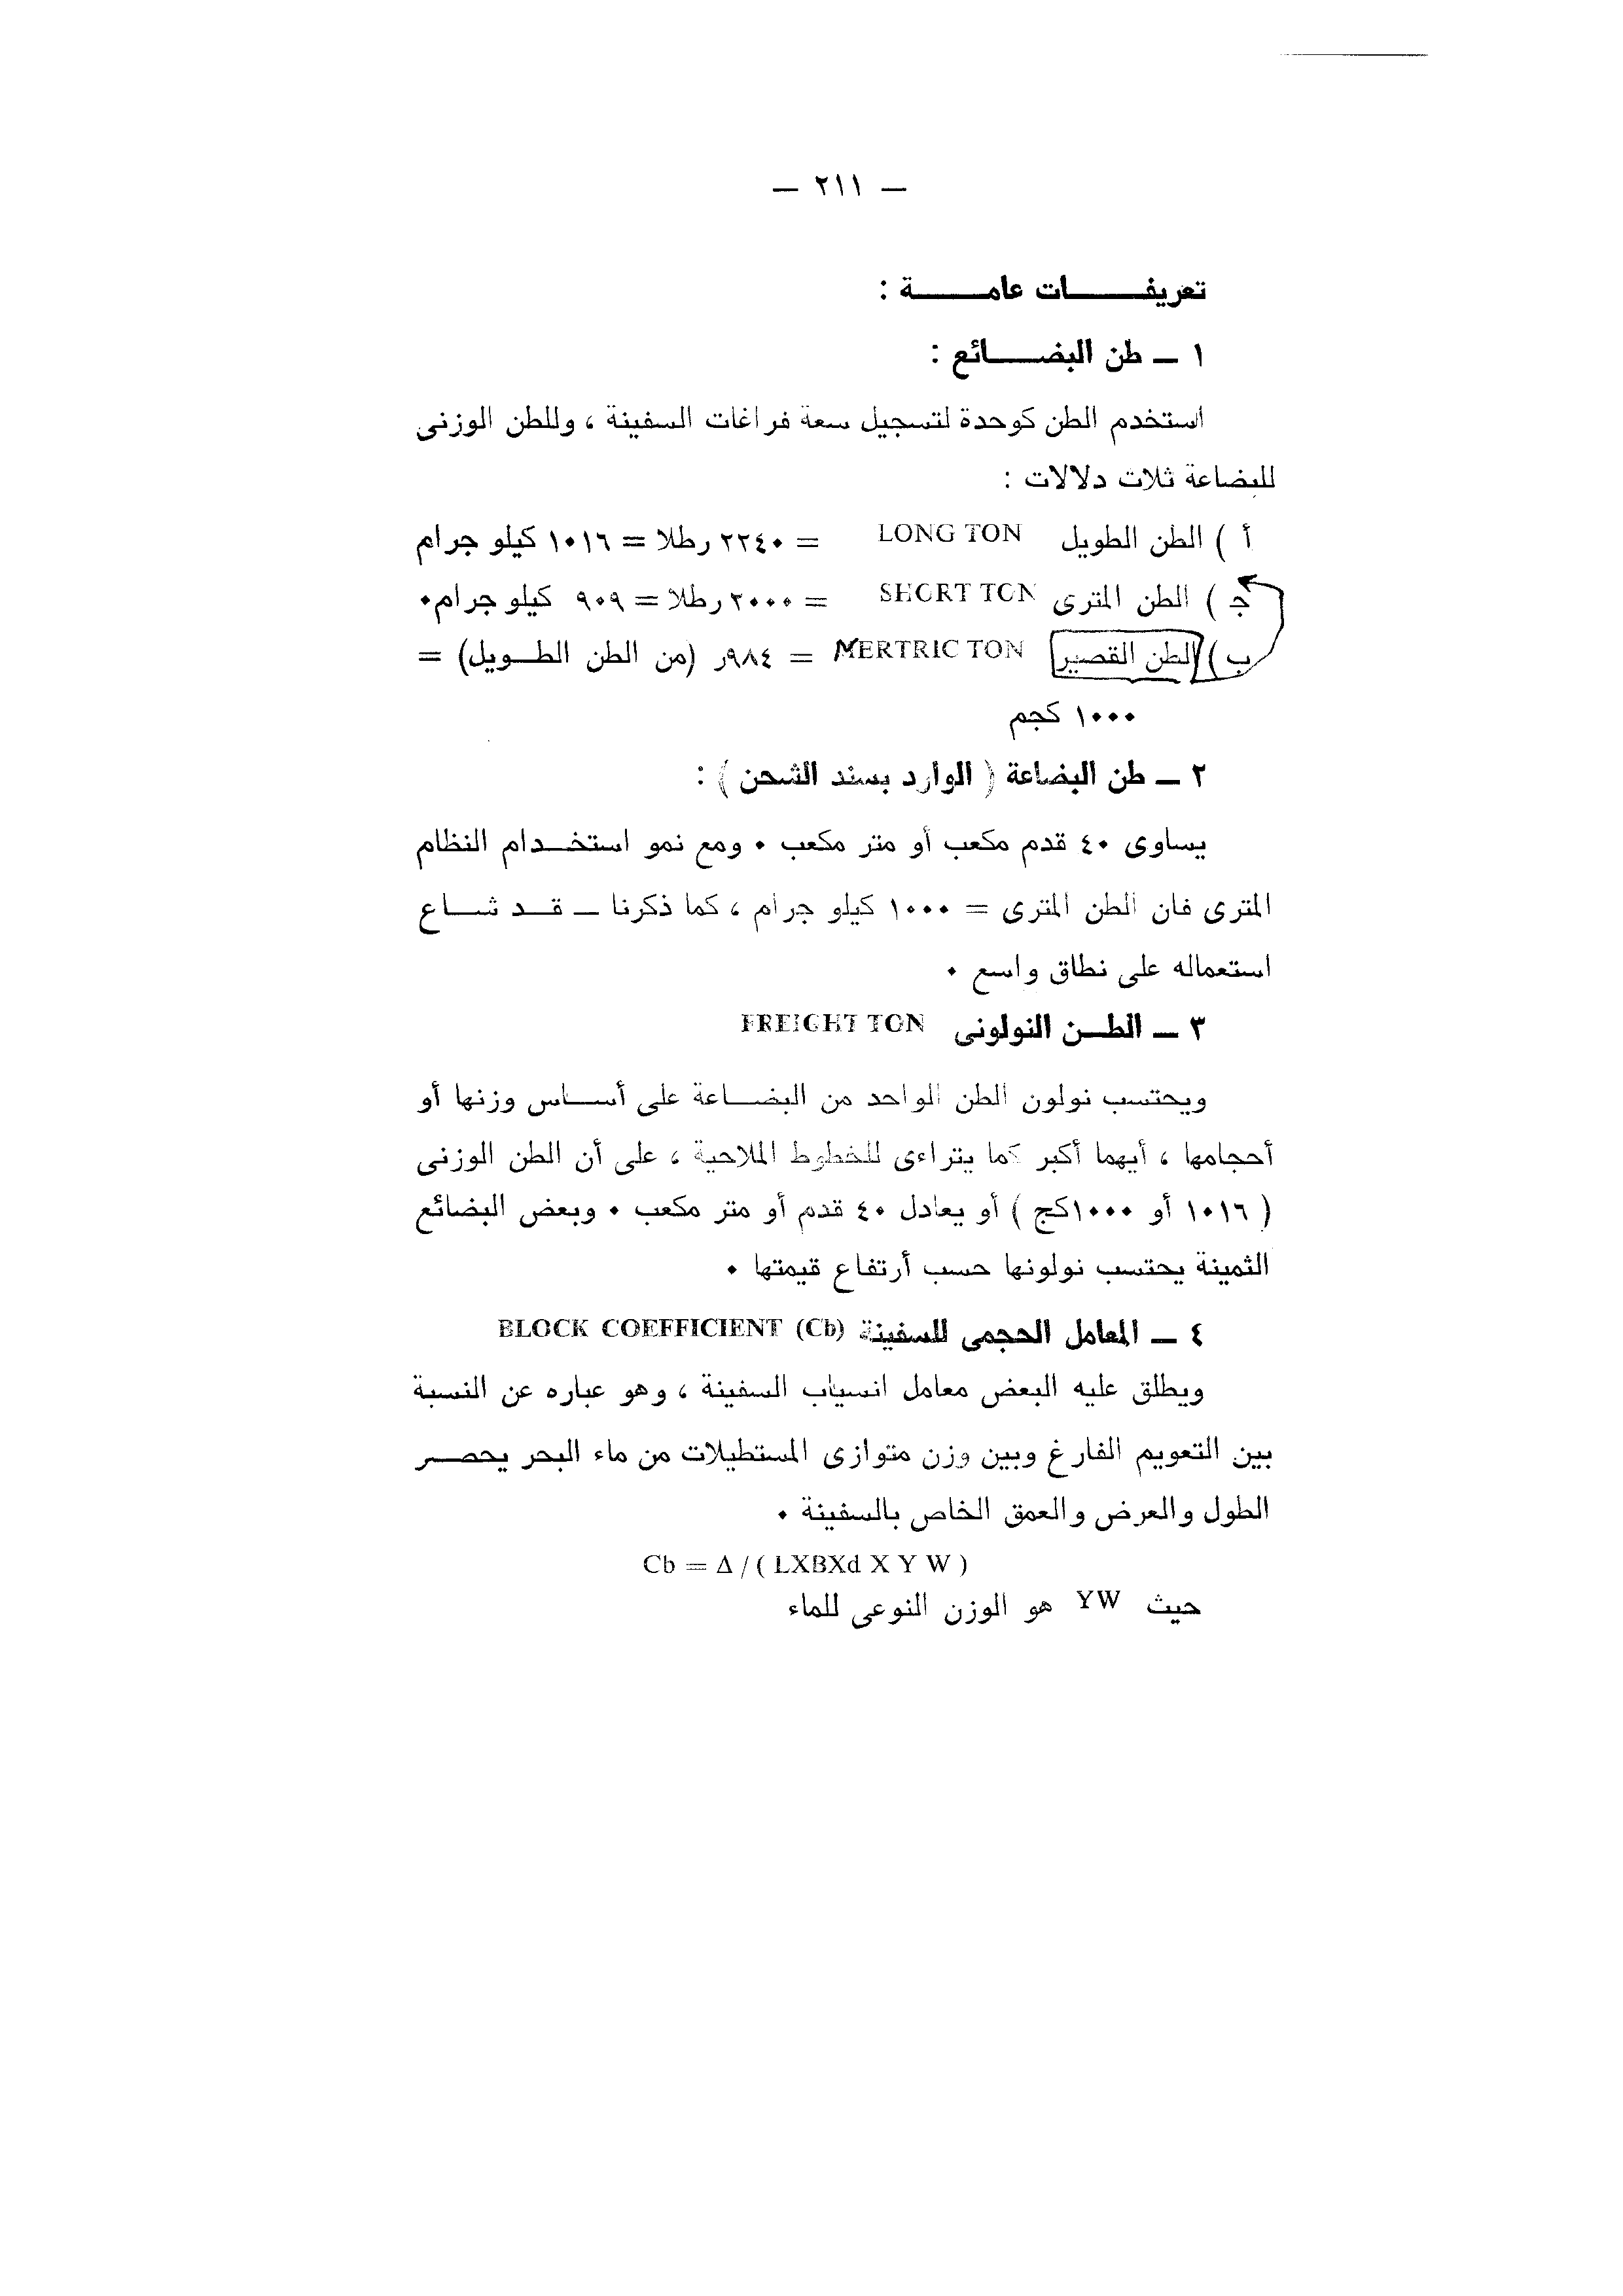 — ٢١١ —
تعريفـــــات عامـــــة :
١ — طن البضـــــائع :
استخدم الطن كوحدة لتسجيل سعة فراغات السفينة ، وللطن الوزنى
للبضاعة ثلاث دلالات :
أ ) الطن الطويل LONG TON = ٢٢٤٠ رطلا = ١٠١٦ كيلو جرام
ج ) الطن المترى SHORT TON = ٢٠٠٠ رطلا = ٩٠٩ كيلو جرام٠
ب ) الطن القصير MERTRIC TON = ٩٨٤ر (من الطن الطــويل) =
١٠٠٠ كجم
٢ — طن البضاعة ( الوارد بسند الشحن ) :
يساوى ٤٠ قدم مكعب أو متر مكعب ٠ ومع نمو استخــدام النظام
المترى فان الطن المترى = ١٠٠٠ كيلو جرام ، كما ذكرنا — قــد شــاع
استعماله على نطاق واسع ٠
٣ — الطــن النولونى FREIGHT TON
ويحتسب نولون الطن الواحد من البضــاعة على أســاس وزنها أو
أحجامها ، أيهما أكبر كما يتراءى للخطوط الملاحية ، على أن الطن الوزنى
( ١٠١٦ أو ١٠٠٠كج ) أو يعادل ٤٠ قدم أو متر مكعب ٠ وبعض البضائع
الثمينة يحتسب نولونها حسب أرتفاع قيمتها ٠
٤ — المعامل الحجمى للسفينة BLOCK COEFFICIENT (Cb)
ويطلق عليه البعض معامل انسياب السفينة ، وهو عباره عن النسبة
بين التعويم الفارغ وبين وزن متوازى المستطيلات من ماء البحر يحصــر
الطول والعرض والعمق الخاص بالسفينة ٠
Cb = Δ / ( LXBXd X Y W )
حيث YW هو الوزن النوعى للماء